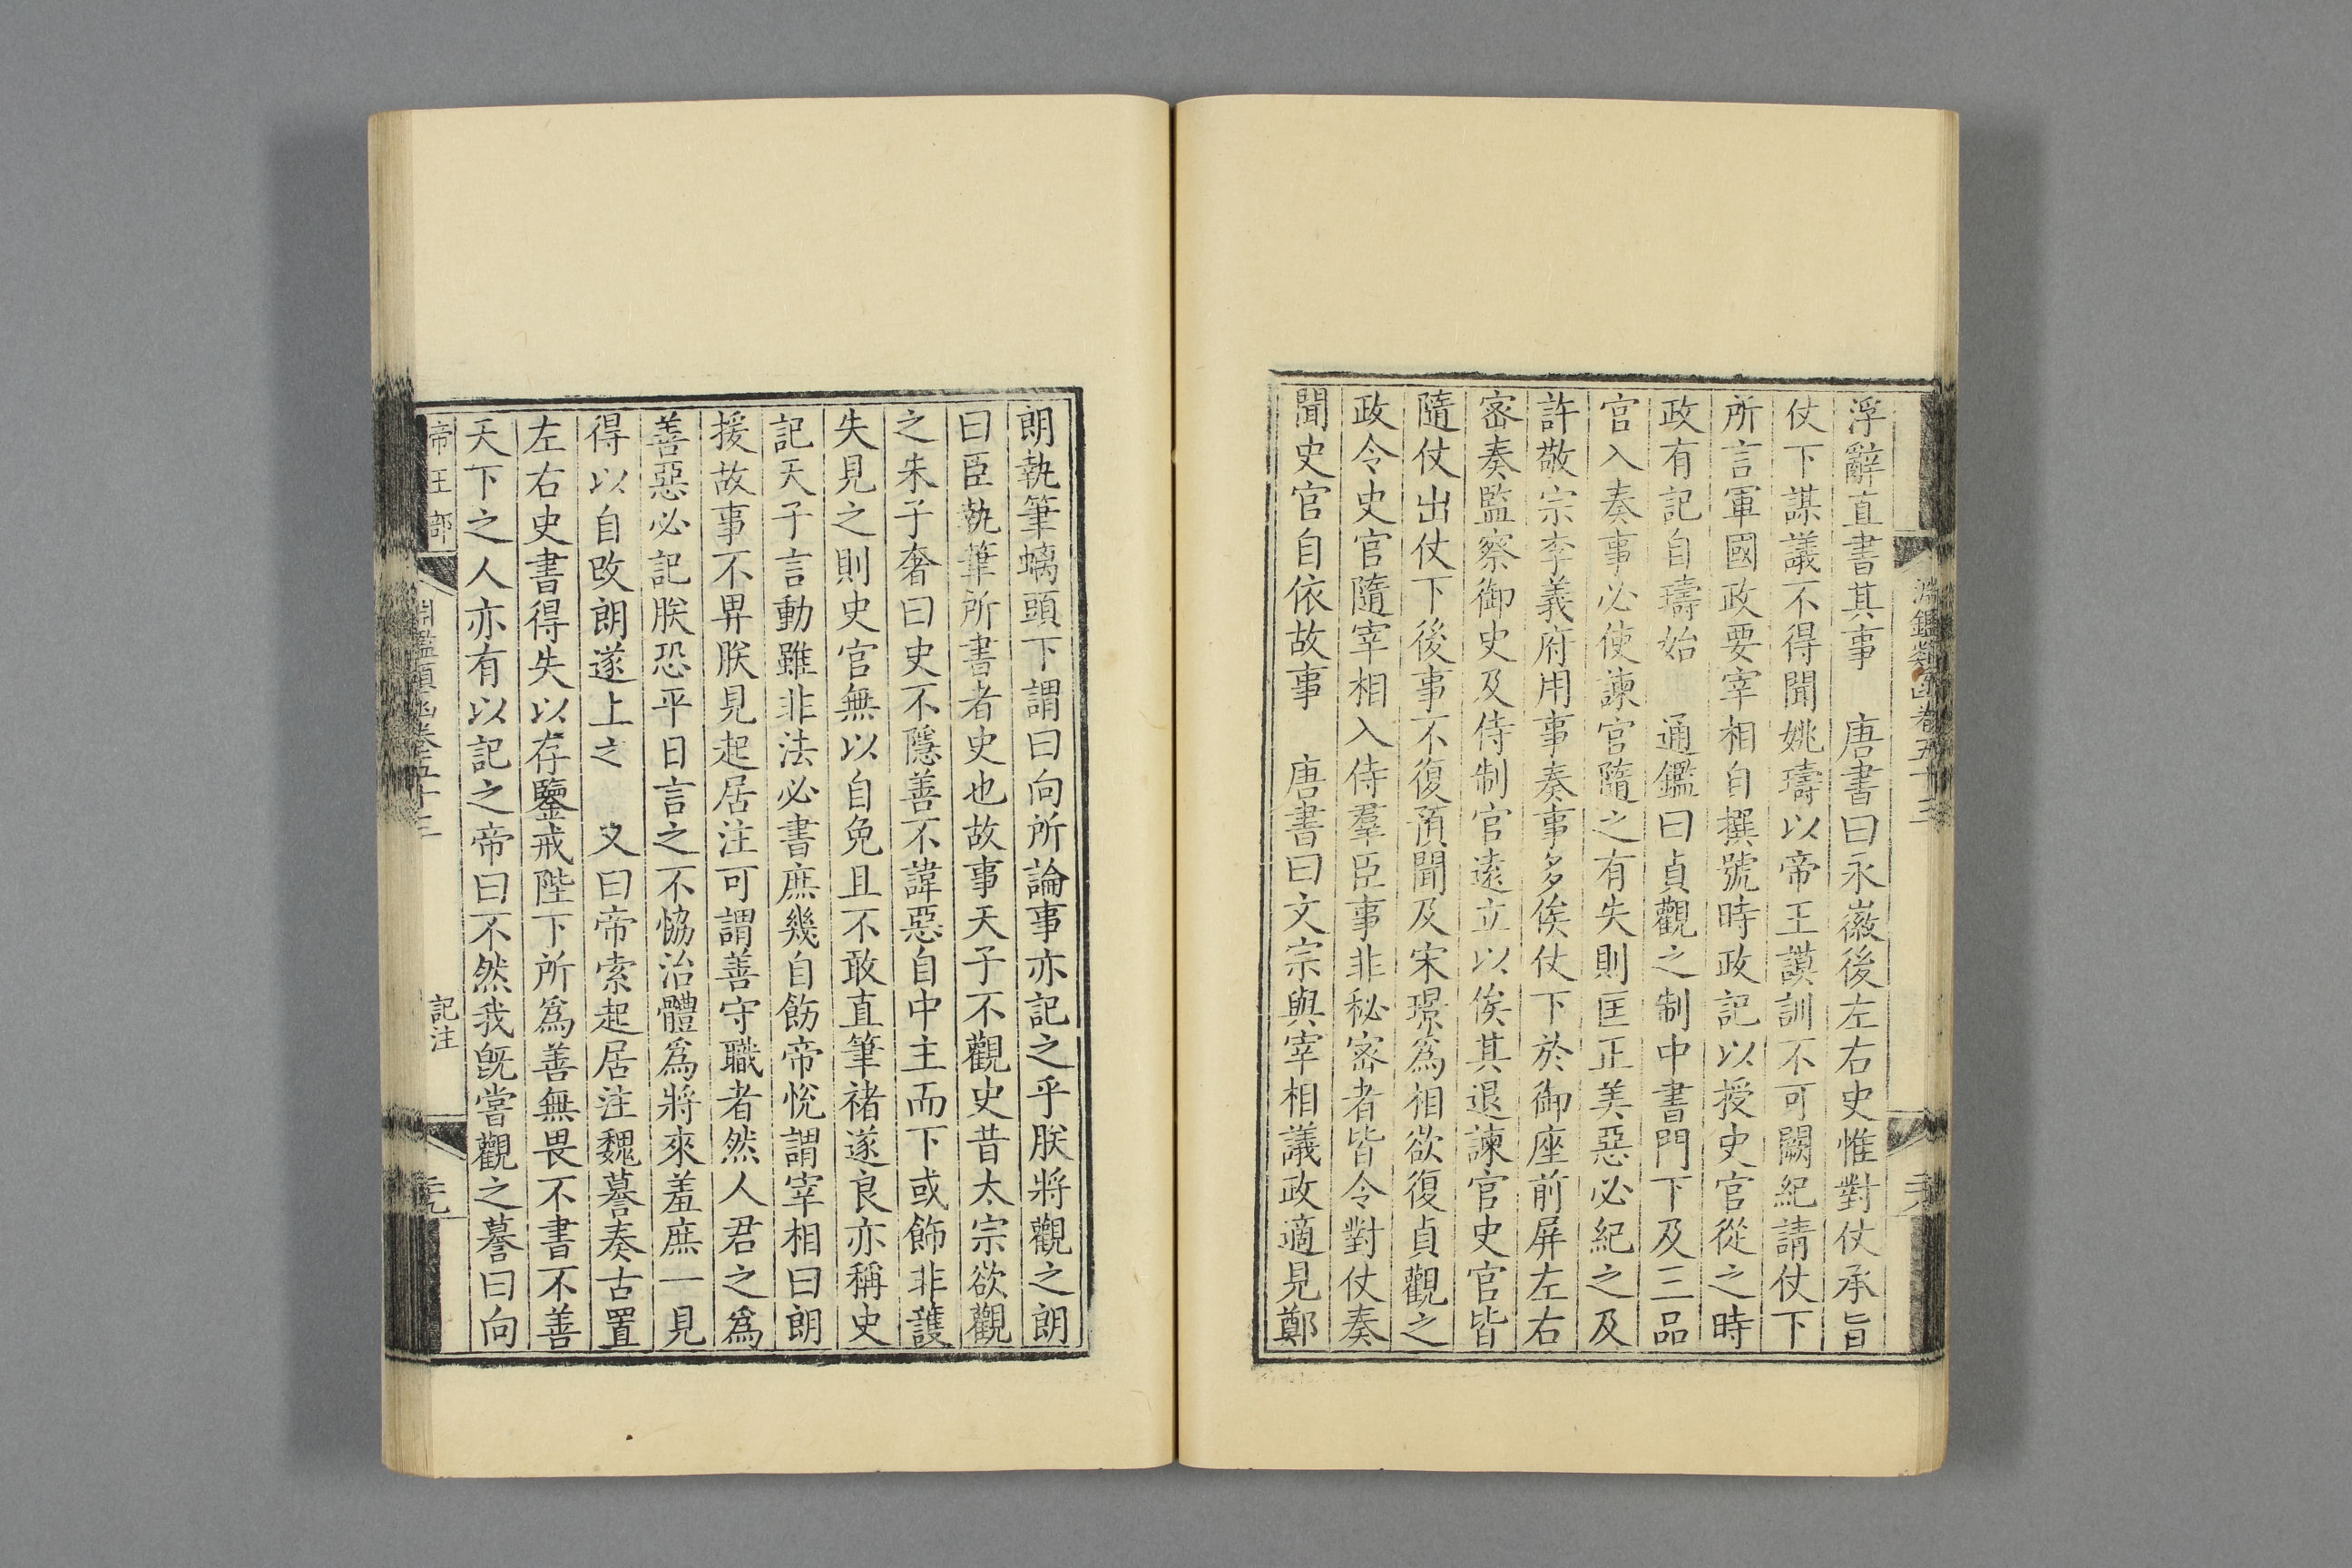 淵鑑類函卷五十三
浮辭直書其事　唐書曰永徽後左右史惟對仗承旨
仗下謀議不得聞姚璹以帝王謨訓不可闕紀請仗下
所言軍國政要宰相自撰號時政記以授史官從之時
政有記自璹始　通鑑曰貞觀之制中書門下及三品
官入奏事必使諫官隨之有失則匡正美惡必紀之及
許敬宗李義府用事奏事多俟仗下於御座前屏左右
密奏監察御史及侍制官遠立以俟其退諫官史官皆
隨仗出仗下後事不復預聞及宋璟為相欲復貞觀之
政令史官隨宰相入侍羣臣事非秘密者皆令對仗奏
聞史官自依故事　唐書曰文宗與宰相議政適見鄭
朗執筆螭頭下謂曰向所論事亦記之乎朕將觀之朗
曰臣執筆所書者史也故事天子不觀史昔太宗欲觀
之朱子奢曰史不隱善不諱惡自中主而下或飾非護
失見之則史官無以自免且不敢直筆褚遂良亦稱史
記天子言動雖非法必書庶幾自飭帝悅謂宰相曰朗
援故事不畀朕見起居注可謂善守職者然人君之為
善惡必記朕恐平日言之不恊治體為將來羞庶一見
得以自改朗遂上之　又曰帝索起居注魏謩奏古置
左右史書得失以存鑒戒陛下所為善無畏不書不善
天下之人亦有以記之帝曰不然我既嘗觀之謩曰向
帝王部　淵鑑類函卷五十三　記注　元